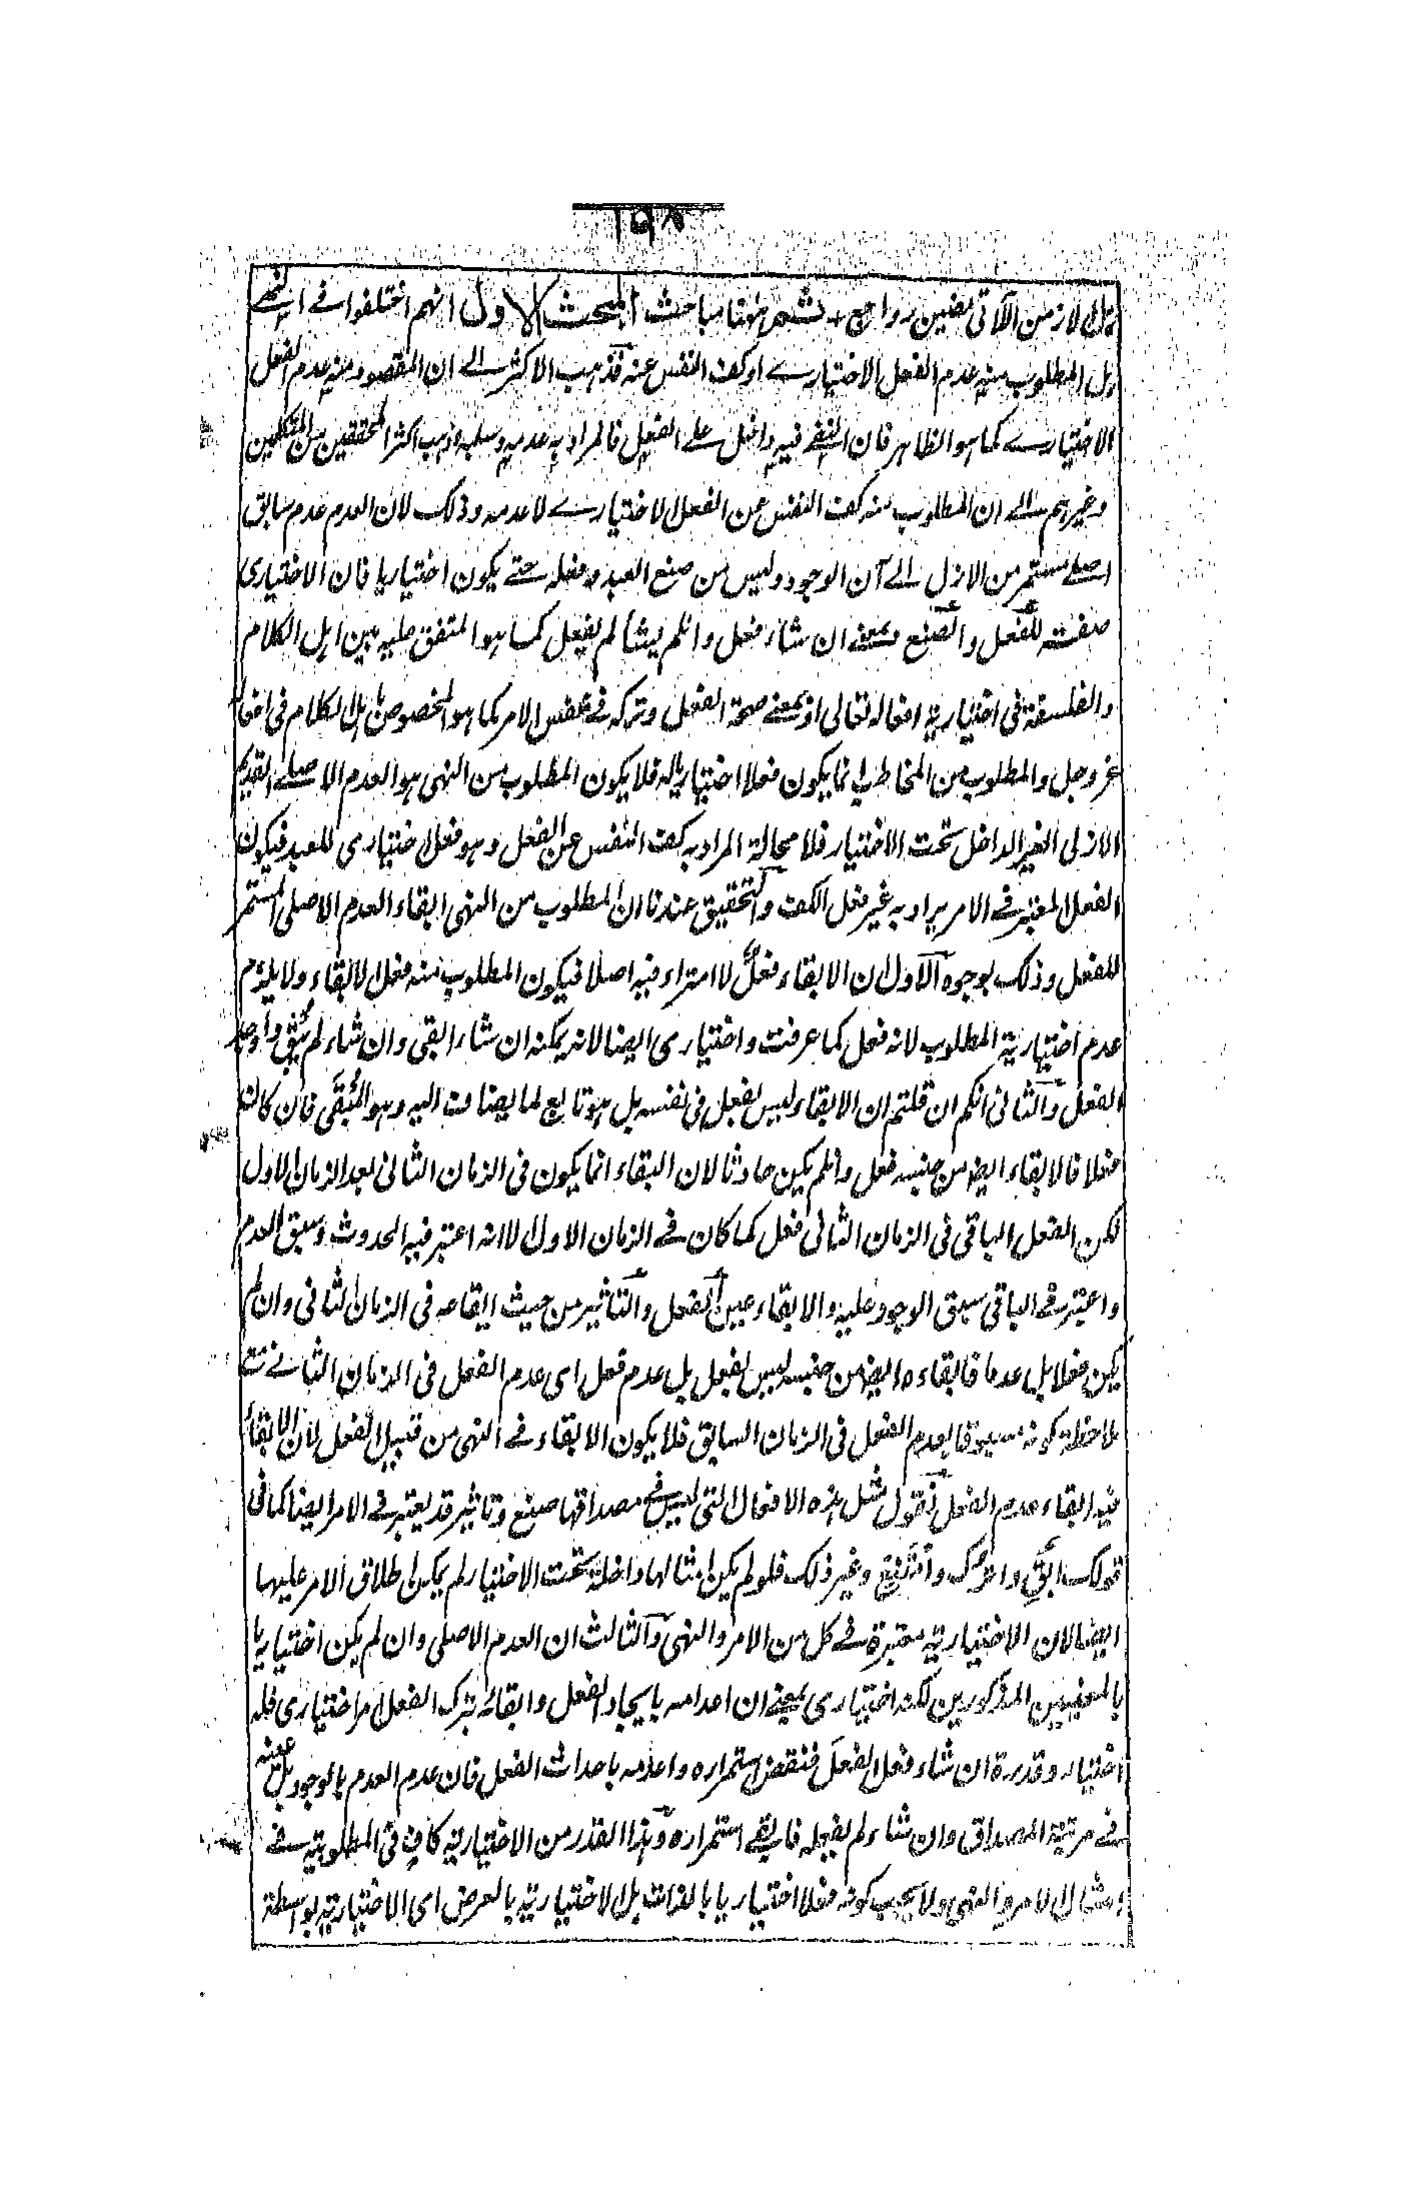 ١٥٨
بل لازمن الآتي نصين رواجع ـ ثم ههنا مباحث المبحث الاول انهم اختلفوا في ان النهي
بل المطلوب منه عدم الفعل الاختياري او كف النفس عنه فذهب الاكثر الى ان المقصود منه عدم الفعل
الاختياري كما هو الظاهر فان النفي فيه داخل على الفعل فالمراد به عدمه وسلبه وذهب اكثر المحققين من المتكلمين
وغيرهم الى ان المطلوب منه كف النفس عن الفعل الاختياري لا عدمه وذلك لان العدم عدم سابق
اصلي مستمر من الازل الى آن الوجود وليس من صنع العبد وفعله حتى يكون اختياريا فان الاختياري
صفته للفعل والصنع بمعنى ان شاء فعل وان لم يشأ لم يفعل كما هو المتفق عليه بين اهل الكلام
والفلسفة في اختيارية افعاله تعالى او بمعنى صحة الفعل وتركه في نفس الامر كما هو المخصوص باهل الكلام في افعاله
عز وجل والمطلوب من المخاطب انما يكون فعلا اختياريا له فلا يكون المطلوب من النهى هو العدم الاصلي القديم
الازلى الغير الداخل تحت الاختيار فلا محالة المراد به كف النفس عن الفعل وهو فعل اختيارى للعبد فيكون
الفعل المعتبر في الامر يراد به غير فعل الكف والتحقيق عندنا ان المطلوب من النهى ابقاء العدم الاصلى المستمر
للفعل وذلك بوجوه الاول ان الابقاء فعل لا امتراء فيه اصلا فيكون المطلوب منه فعل الابقاء ولا يلزم
عدم اختيارية المطلوب لانه فعل كما عرفت واختيارى ايضا لانه يمكنه ان شاء ابقى وان شاء لم يبق واوجد
الفعل والثانى انكم ان قلتم ان الابقاء ليس بفعل فى نفسه بل هو تابع لما يضاف اليه وهو المبقى فان كان
فعلا فالابقاء ايضا من جنسه فعل وان لم يكن حادثا لان البقاء انما يكون فى الزمان الثانى بعد الزمان الاول
لكن الفعل الباقى فى الزمان الثانى فعل كما كان في الزمان الاول الا انه اعتبر فيه الحدوث وسبق العدم
واعتبر في الباقى سبق الوجود عليه والابقاء عين الفعل والتأثير من حيث ايقاعه فى الزمان الثانى وان لم
يكن فعلا بل عدما فابقاءه ايضا من جنسه ليس بفعل بل عدم فعل اى عدم الفعل فى الزمان الثاني مع
ملاحظة كونه مسبوقا بعدم الفعل فى الزمان السابق فلا يكون الابقاء في النهى من قبيل الفعل لان الابقاء
فيه ابقاء عدم الفعل نقول مثل هذه الافعال التى ليس في مصداقها صنع وتاثير قد يعتبر في الامر ايضا كما فى
قولك ابق واترك وانتفع وغير ذلك فلو لم يكن امثالها داخلة تحت الاختيار لم يكن اطلاق الامر عليها
ايضا لان الاختيارية معتبرة في كل من الامر والنهى والثالث ان العدم الاصلى وان لم يكن اختياريا
بالمعنيين المذكورين لكنه اختيارى بمعنى ان اعدامه بايجاد الفعل وابقائه بترك الفعل امر اختيارى فله
اختيار وقدرة ان شاء فعل الفعل فنقض استمراره واعدمه باحداث الفعل فان عدم العدم بالوجود بل عينه
في مرتبة المصداق وان شاء لم يفعله فابقى استمراره وهذا القدر من الاختيارية كاف فى المطلوبية في
امتثال الامر والنهى ولا يجب كونه فعلا اختياريا بالذات بل الاختيارية بالعرض اى الاختيارية بواسطة